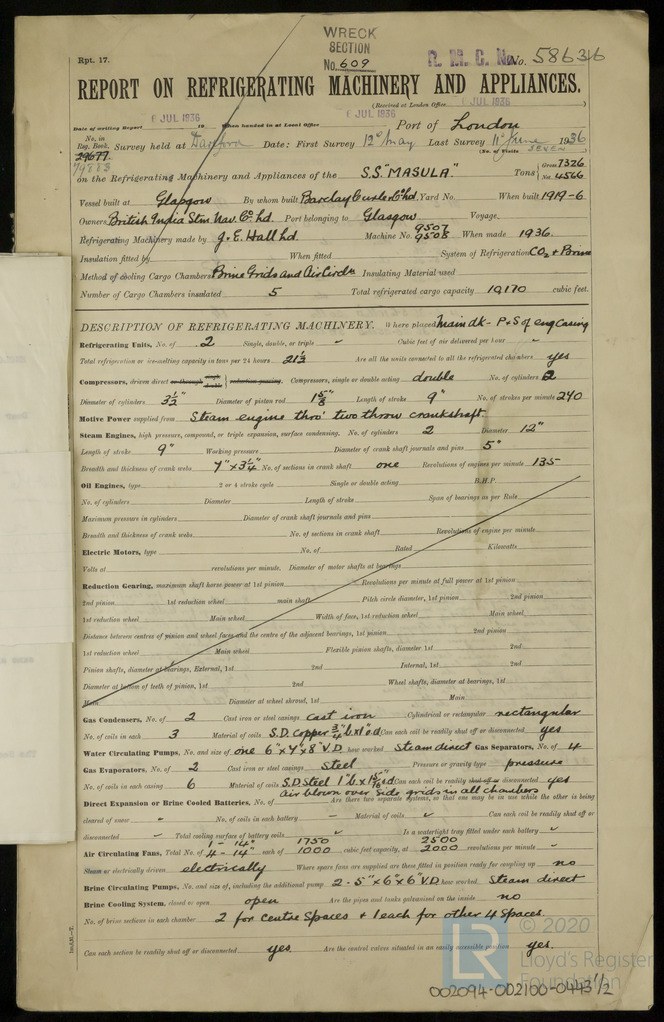 WRECK
SECTION
No. 609
Rpt. 17.
R.M.C. No. 58636
REPORT ON REFRIGERATING MACHINERY AND APPLIANCES.
(Received at London Office 6 JUL 1936 )
Date of writing Report 6 JUL 1936 19 When handed in at Local Office 6 JUL 1936 Port of London
No. in Reg. Book. Survey held at Dartford Date: First Survey 12th May Last Survey 11th June 1936
29677. (No. of Visits SEVEN )
79883
on the Refrigerating Machinery and Appliances of the S.S. "MASULA." Tons Gross 7326 Net 4566
Vessel built at Glasgow By whom built Barclay Curle & Co Ltd Yard No. When built 1919-6
Owners British India Stm. Nav. Co. Ltd. Port belonging to Glasgow Voyage.
Refrigerating Machinery made by J. & E. Hall Ltd. Machine No. 9507 9508 When made 1936.
Insulation fitted by When fitted System of Refrigeration CO2 + Brine
Method of cooling Cargo Chambers Brine Grids and Air Circln Insulating Material used
Number of Cargo Chambers insulated 5 Total refrigerated cargo capacity 19170 cubic feet.
DESCRIPTION OF REFRIGERATING MACHINERY. Where placed Main dk - P + S of eng casing
Refrigerating Units, No. of 2 Single, double, or triple - Cubic feet of air delivered per hour -
Total refrigeration or ice-melting capacity in tons per 24 hours 21⅓ Are all the units connected to all the refrigerated chambers yes
Compressors, driven direct or through single double reduction gearing. Compressors, single or double acting double No. of cylinders 2
Diameter of cylinders 3½" Diameter of piston rod 1⅝" Length of stroke 9" No. of strokes per minute 270
Motive Power supplied from Steam engine thro' two throw crankshaft
Steam Engines, high pressure, compound, or triple expansion, surface condensing. No. of cylinders 2 Diameter 12"
Length of stroke 9" Working pressure Diameter of crank shaft journals and pins 5"
Breadth and thickness of crank webs 7" x 3¼" No. of sections in crank shaft one Revolutions of engines per minute 135
Oil Engines, type 2 or 4 stroke cycle Single or double acting B.H.P.
No. of cylinders Diameter Length of stroke Span of bearings as per Rule
Maximum pressure in cylinders Diameter of crank shaft journals and pins
Breadth and thickness of crank webs No. of sections in crank shaft Revolutions of engine per minute
Electric Motors, type No. of Rated Kilowatts
Volts at revolutions per minute. Diameter of motor shafts at bearings
Reduction Gearing, maximum shaft horse power at 1st pinion Revolutions per minute at full power at 1st pinion
2nd pinion 1st reduction wheel main shaft Pitch circle diameter, 1st pinion 2nd pinion
1st reduction wheel Main wheel Width of face, 1st reduction wheel Main wheel
Distance between centres of pinion and wheel faces and the centre of the adjacent bearings, 1st pinion 2nd pinion
1st reduction wheel Main wheel Flexible pinion shafts, diameter 1st 2nd
Pinion shafts, diameter at bearings, External, 1st 2nd Internal, 1st 2nd
Diameter at bottom of teeth of pinion, 1st 2nd Wheel shafts, diameter at bearings, 1st
Main Diameter at wheel shroud, 1st Main
Gas Condensers, No. of 2 Cast iron or steel casings cast iron Cylindrical or rectangular rectangular
No. of coils in each 3 Material of coils S.D. Copper Can each coil be readily shut off or disconnected yes
Water Circulating Pumps, No. and size of one 6" x 7" x 8" V.D. how worked Steam direct Gas Separators, No. of 4
Gas Evaporators, No. of 2 Cast iron or steel casings Steel Pressure or gravity type pressure
No. of coils in each casing 6 Material of coils S.D. Steel Can each coil be readily shut off or disconnected yes
Air blown over side grids in all chambers
Direct Expansion or Brine Cooled Batteries, No. of Are there two separate systems, so that one may be in use while the other is being
cleared of snow - No. of coils in each battery - Material of coils Can each coil be readily shut off or
disconnected Total cooling surface of battery coils Is a watertight tray fitted under each battery
Air Circulating Fans, Total No. of 1 - 14" 4 - 14" each of 1750 1000 cubic feet capacity, at 2500 2000 revolutions per minute -
Steam or electrically driven electrically Where spare fans are supplied are these fitted in position ready for coupling up no
Brine Circulating Pumps, No. and size of, including the additional pump 2 - 5" x 6" x 6" V.D. how worked Steam direct
Brine Cooling System, closed or open open Are the pipes and tanks galvanised on the inside no
No. of brine sections in each chamber 2 for centre spaces + 1 each for other 4 spaces.
Can each section be readily shut off or disconnected yes. Are the control valves situated in an easily accessible position yes.
© 2020
Lloyd's Register
Foundation
LR
002094-002100-0443 1/2